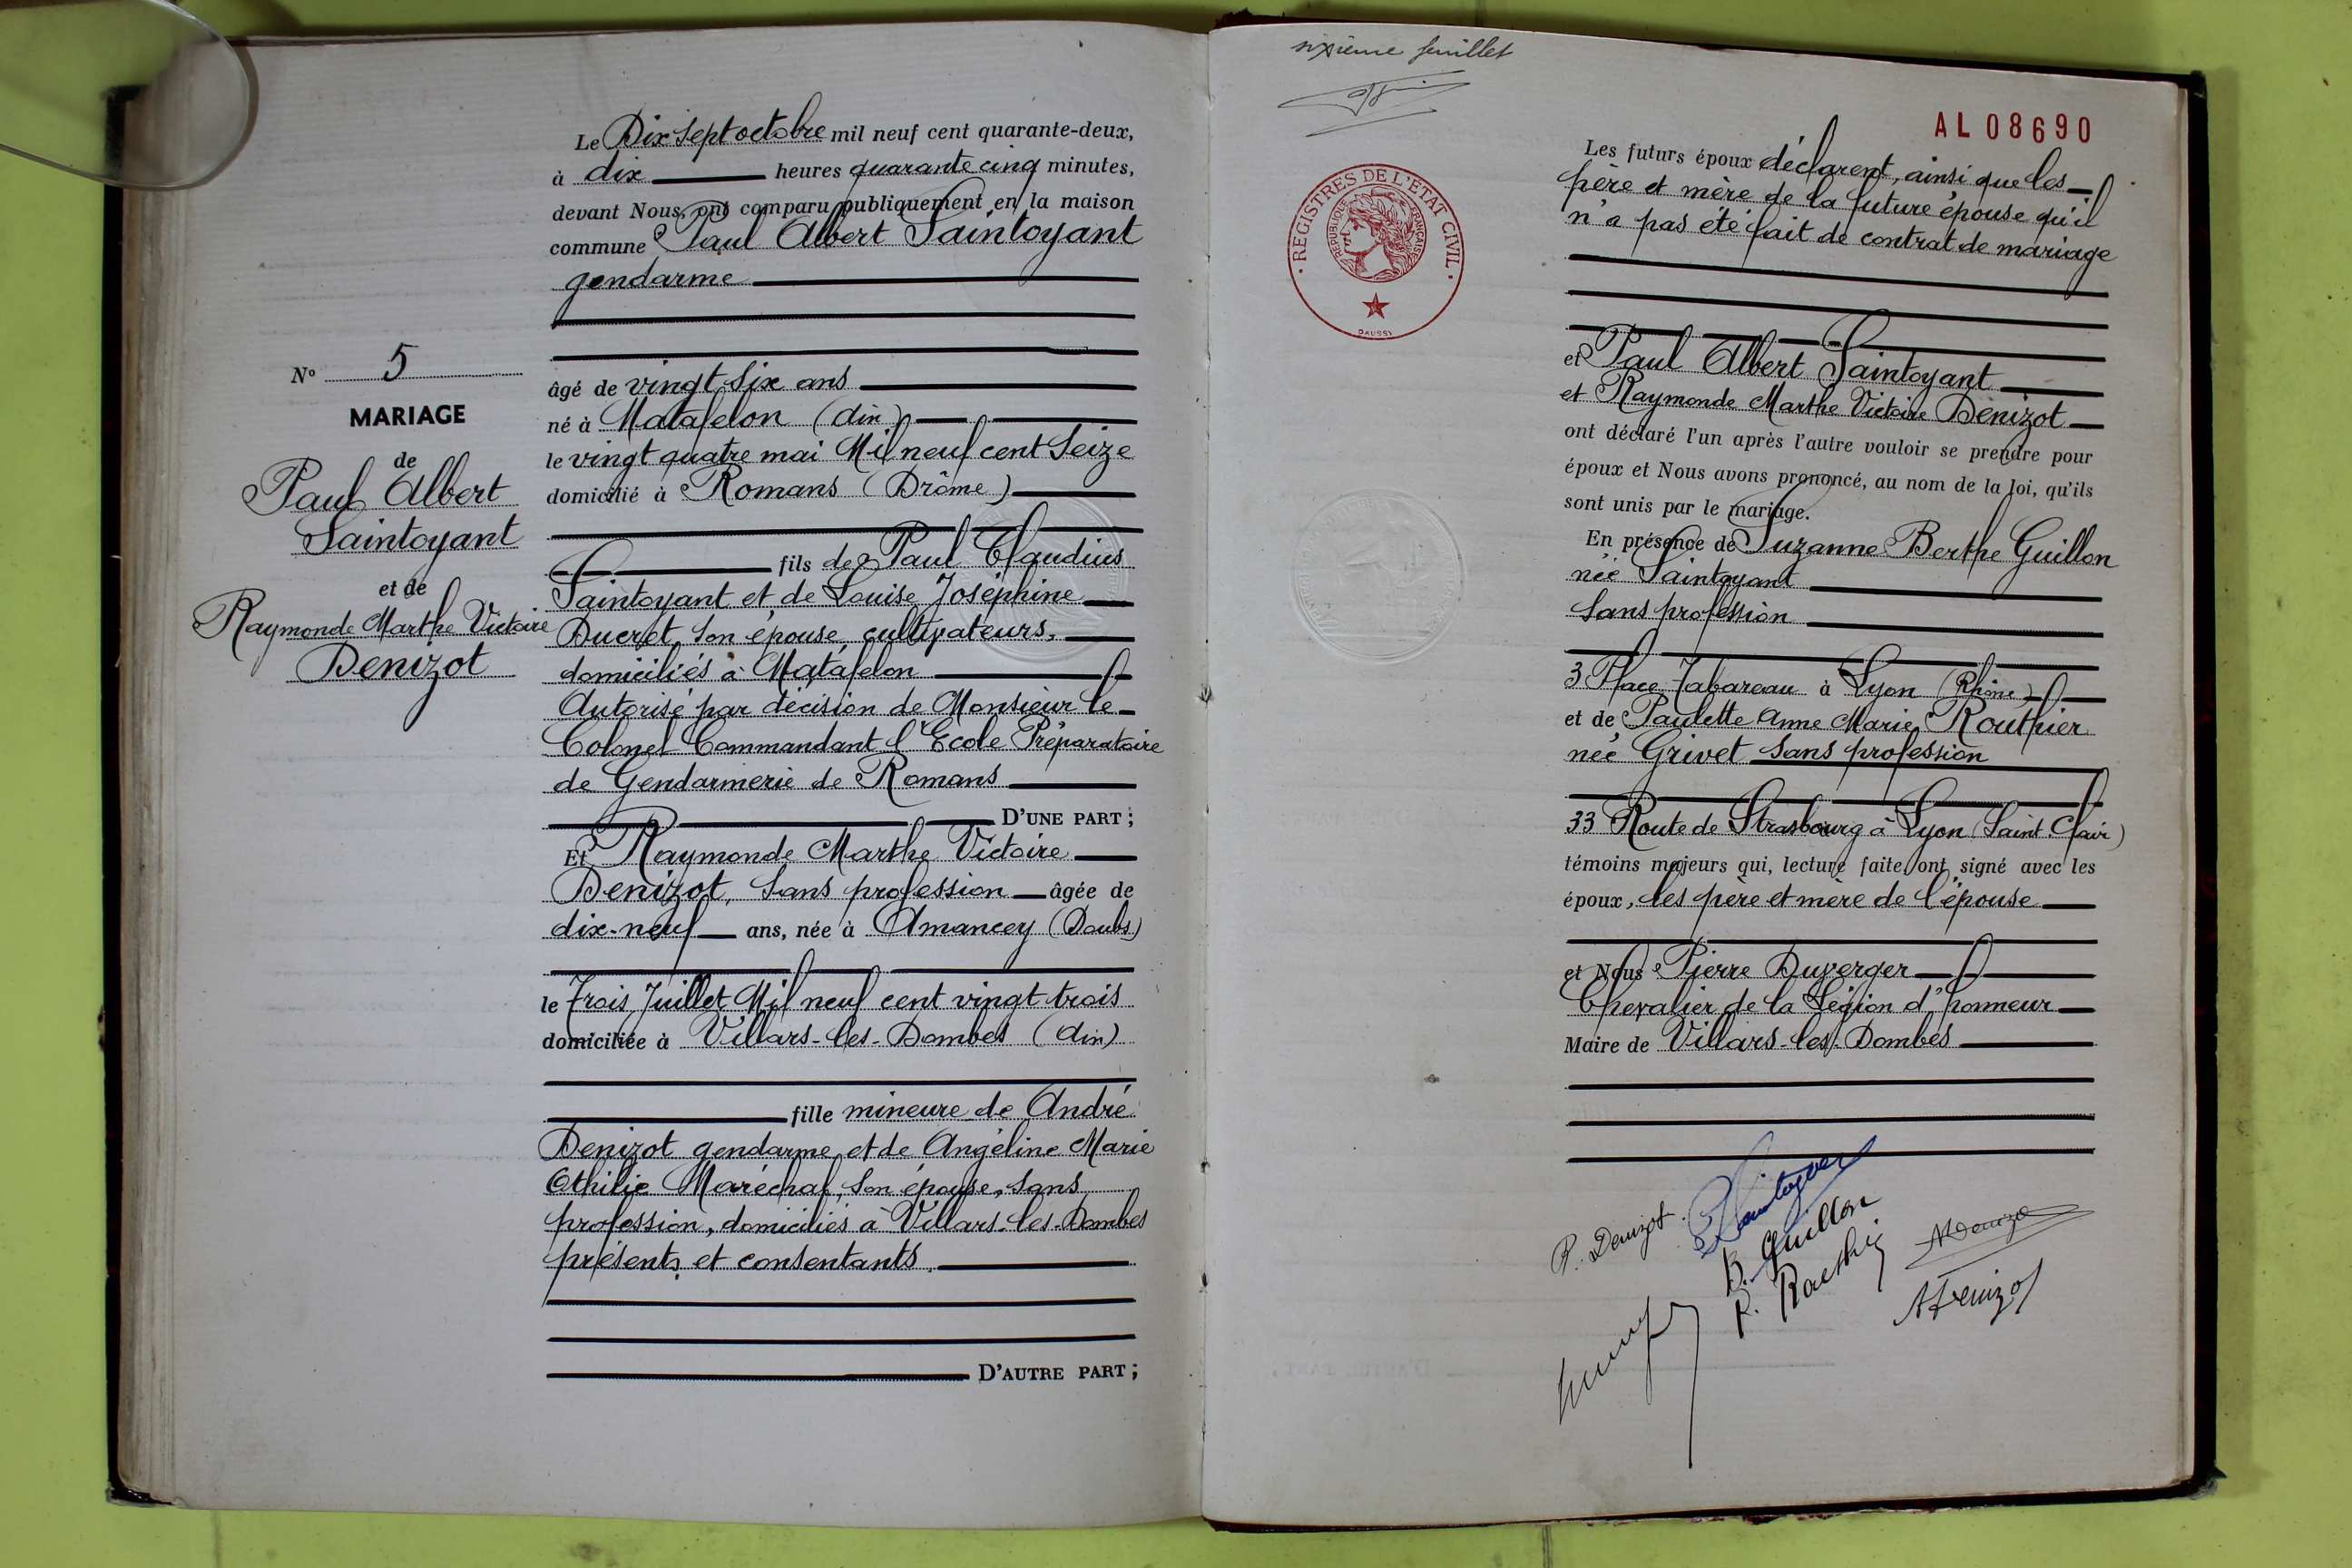 Le Dix sept octobre mil neuf cent quarante-deux,
à dix heures quarante cinq minutes,
devant Nous, ont comparu publiquement en la maison
commune Paul Albert Saintoyant
gendarme
âgé de vingt six ans
né à Matafelon (Ain)
le vingt quatre mai Mil neuf cent Seize
domicilié à Romans (Drôme)
fils de Paul Claudius
Saintoyant et de Louise Joséphine
Ducret, son épouse, cultivateurs,
domiciliés à Matafelon
Autorisé par décision de Monsieur le
Colonel Commandant l'Ecole Préparatoire
de Gendarmerie de Romans
D'UNE PART ;
Et Raymonde Marthe Victoire
Denizot, sans profession âgée de
dix-neuf ans, née à Amancey (Doubs)
le Trois Juillet Mil neuf cent vingt trois
domiciliée à Villars-les-Dombes (Ain)
fille mineure de André
Denizot gendarme et de Angéline Marie
Othilie Maréchal, son épouse, sans
profession, domiciliés à Villars-les-Dombes
présents et consentants.
D'AUTRE PART ;
No 5
MARIAGE
de
Paul Albert
Saintoyant
et de
Raymonde Marthe Victoire
Denizot
sixième feuillet
AL 08690
REGISTRES DE L'ETAT CIVIL
REPUBLIQUE FRANÇAISE
DAUSSY
Les futurs époux déclarent, ainsi que les
père et mère de la future épouse qu'il
n'a pas été fait de contrat de mariage
et Paul Albert Saintoyant
et Raymonde Marthe Victoire Denizot
ont déclaré l'un après l'autre vouloir se prendre pour
époux et Nous avons prononcé, au nom de la loi, qu'ils
sont unis par le mariage.
En présence de Suzanne Berthe Guillon
née Saintoyant
sans profession
3 Place Tabareau à Lyon (Rhône)
et de Paulette Anne Marie Routhier
née Grivet sans profession
33 Route de Strasbourg à Lyon (Saint-Clair)
témoins majeurs qui, lecture faite ont signé avec les
époux, les père et mère de l'épouse
et Nous Pierre Duverger
Chevalier de la Légion d'honneur
Maire de Villars-les-Dombes
R. Denizot
P Saintoyant
B. Guillon
P. Routhier
A Denizot
A Denizot